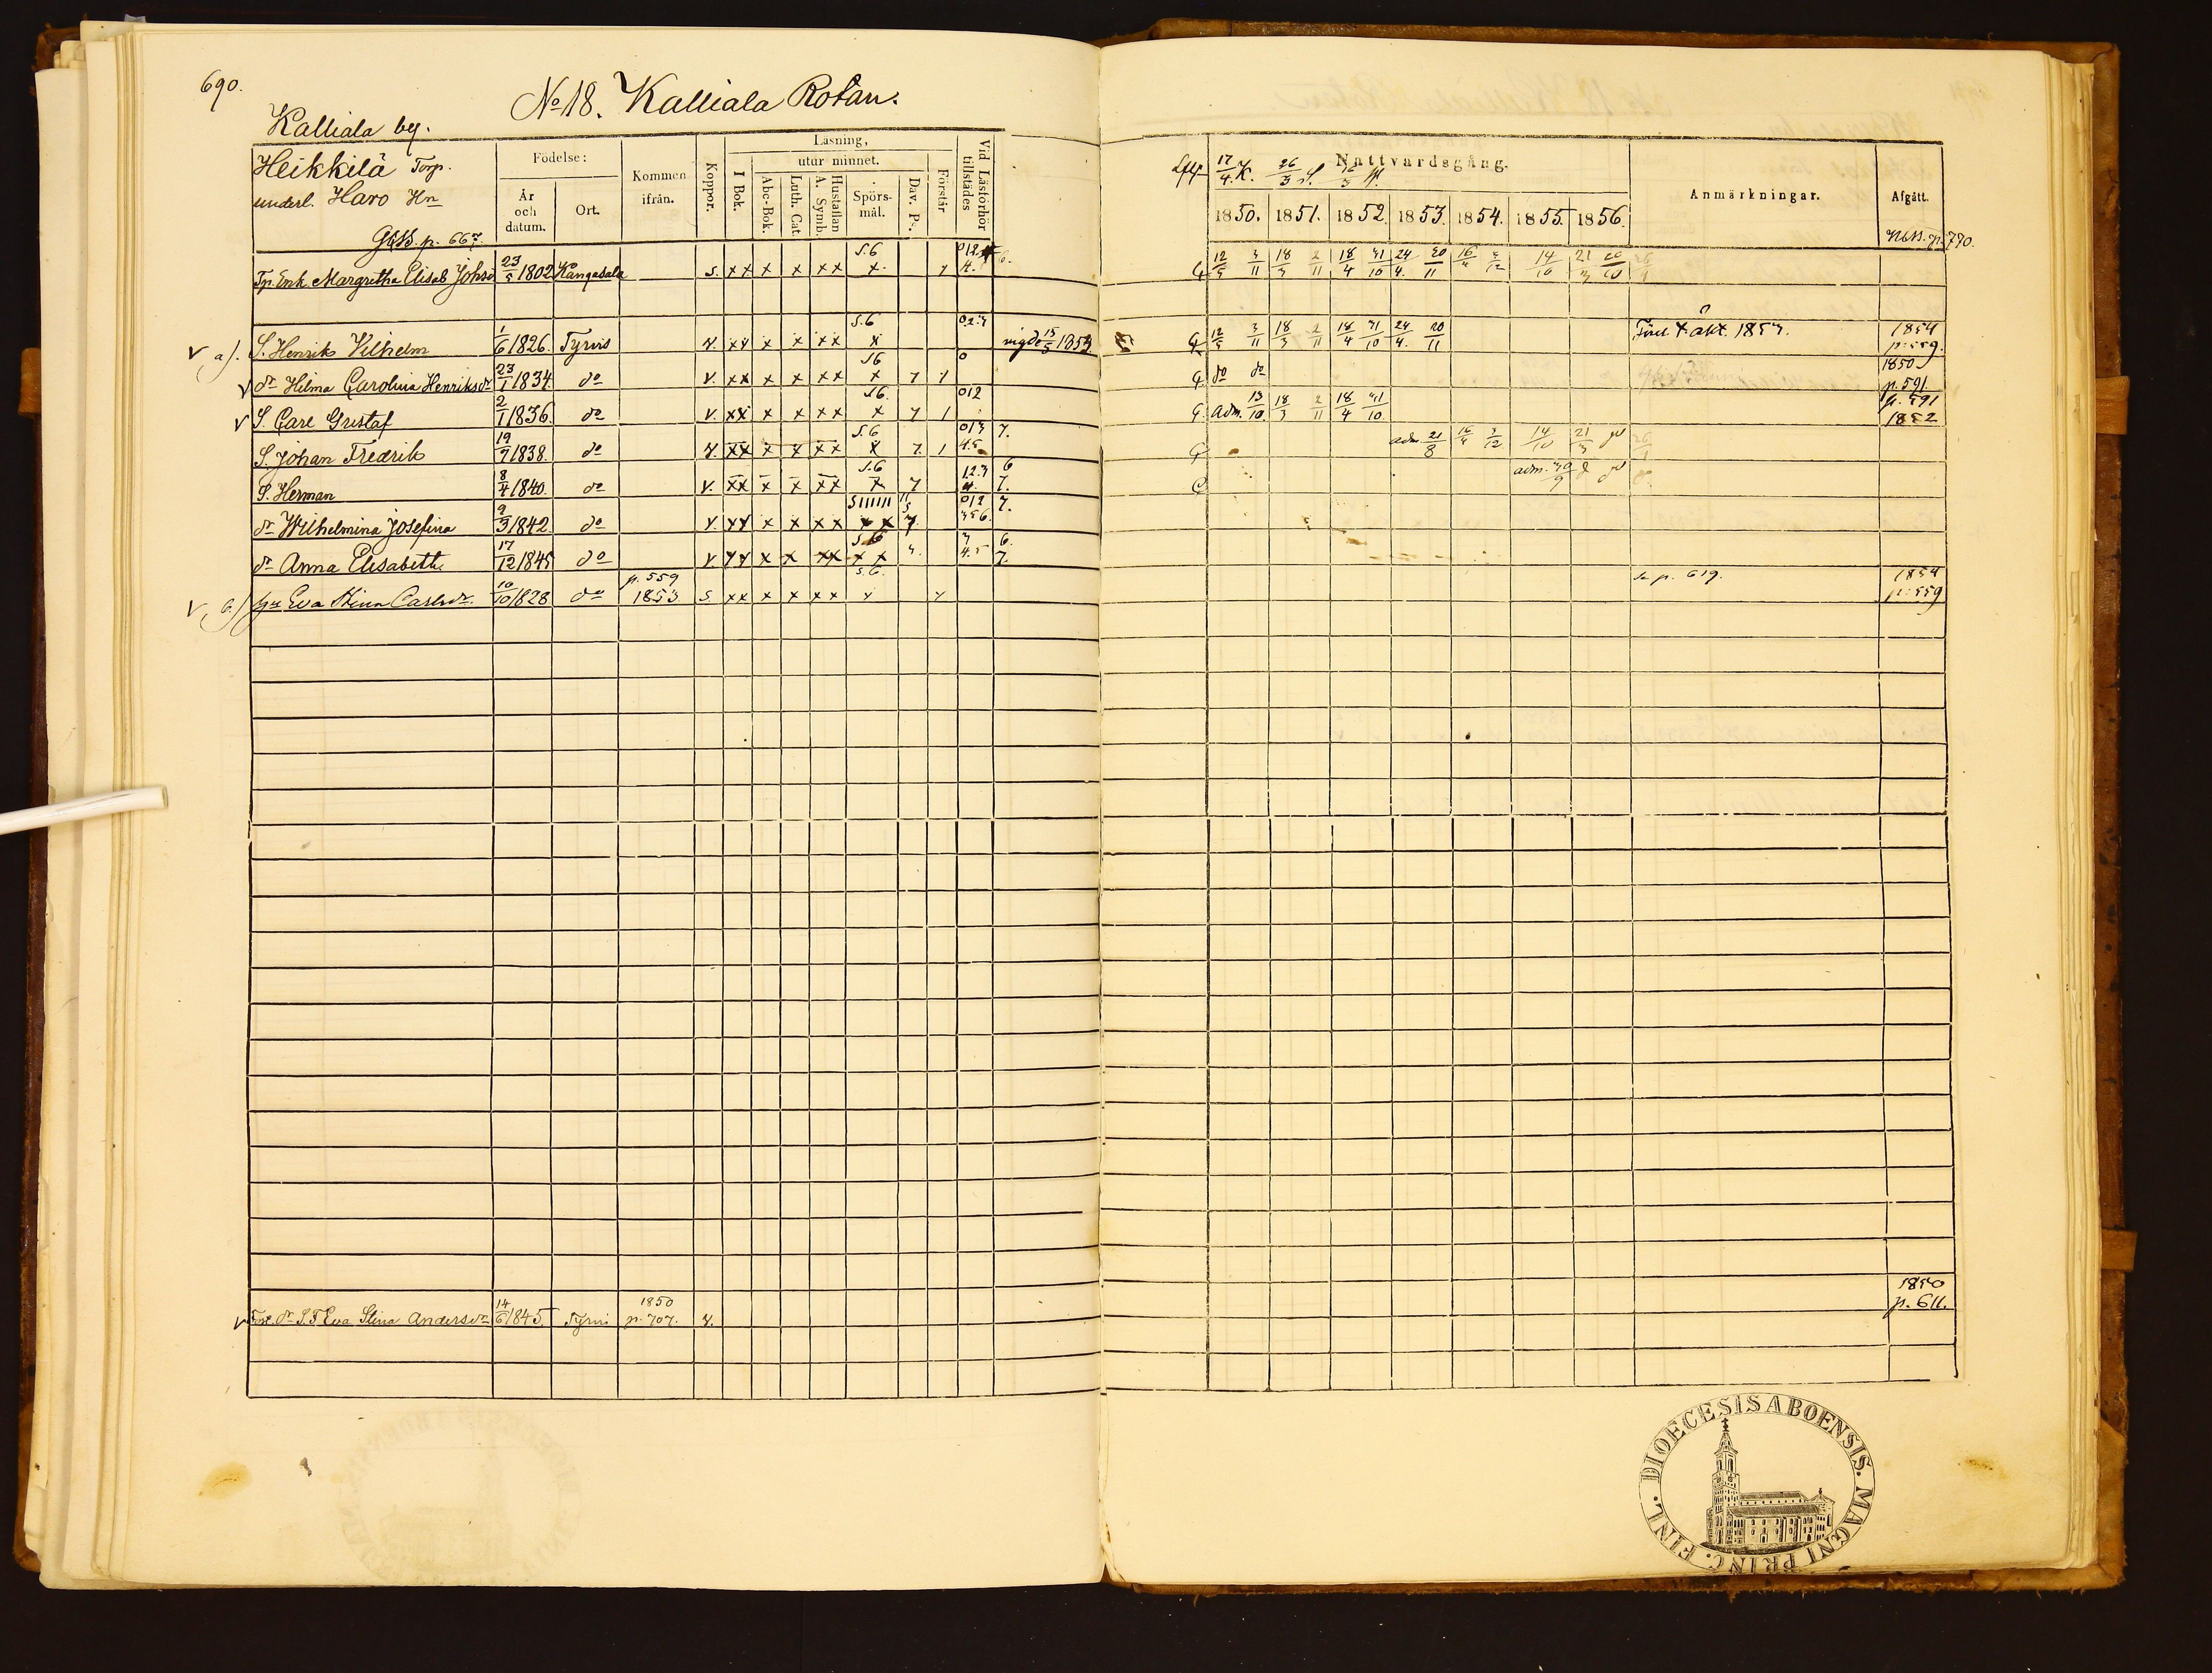 690.
No 18. Kalliala Rotan.
Kalliala by.
Heikkilä Torp.
underl. Haro Hn
GKB. p. 667.
Födelse:
År och datum.
Ort.
Kommen ifrån.
Koppor.
Läsning,
utur minnet.
I Bok.
Abc-Bok.
Luth. Cat.
A. Symb.
Hustaflan
Spörsmål.
Dav. Ps.
Förstår
Vid Läsförhör tillstädes
Nattvardsgång.
17/4 K. 26/3
1850. 1851. 1852. 1853. 1854. 1855. 1856.
Anmärkningar.
Afgått.
NKB. p. 790.
Tp. Enk. Margretha Elisab Johsdr 23/5 1802 Kangasala s. x x x x x x x
12/5 3/11 18/3 2/11 18/4 31/10 24/4. 20/11 16/4 3/12 14/10 21/3 20/10
V a). S. Henrik Vilhelm 1/6 1826. Tyrvis v. x x x x x x x S.6 vigde 15/5 1853
G 12/5 3/11 18/3 2/11 18/4 31/10 24/4. 20/11 1854 p. 559.
V dr Hilma Carolina Henriksdr 23/1 1834. do v. x x x x x x x S6 0
G do do 1850 p. 591.
V S. Carl Gustaf 2/1 1836. do v. x x x x x x x 7 1 S6. 012
G. adm. 13/10. 18/3 2/11 18/4 31/10. p. 591 1852
S. Johan Fredrik 19/7 1838. do v. x x x x x x x 7. 1 S.6 013 4.5 7.
G adm 21/8 16/4 3/12 14/10 21/3
S. Herman 8/4 1840. do v. x x x x x x x 7 S.6 12.3 6 7.
adm. 30/9
dr Wilhelmina Josefina 9/3 1842. do v. x x x x x x x x 7. 012 356. 7.
dr Anna Elisabeth 17/12 1845 do v x x x x x x x x 4.5 6. 7.
V b) Hu Eva Stina Carlsdr. 10/10 1828 do p. 559 1853 s x x x x x x S.6.
se p. 619. 1854 p. 559
V dr S.T Eva Stina Andersdr 14/6 1845. Tyrvi 1850 p. 707. v.
1850 p. 611.
DIOECESIS ABOENSIS. MAGNI PRINC. FINL.